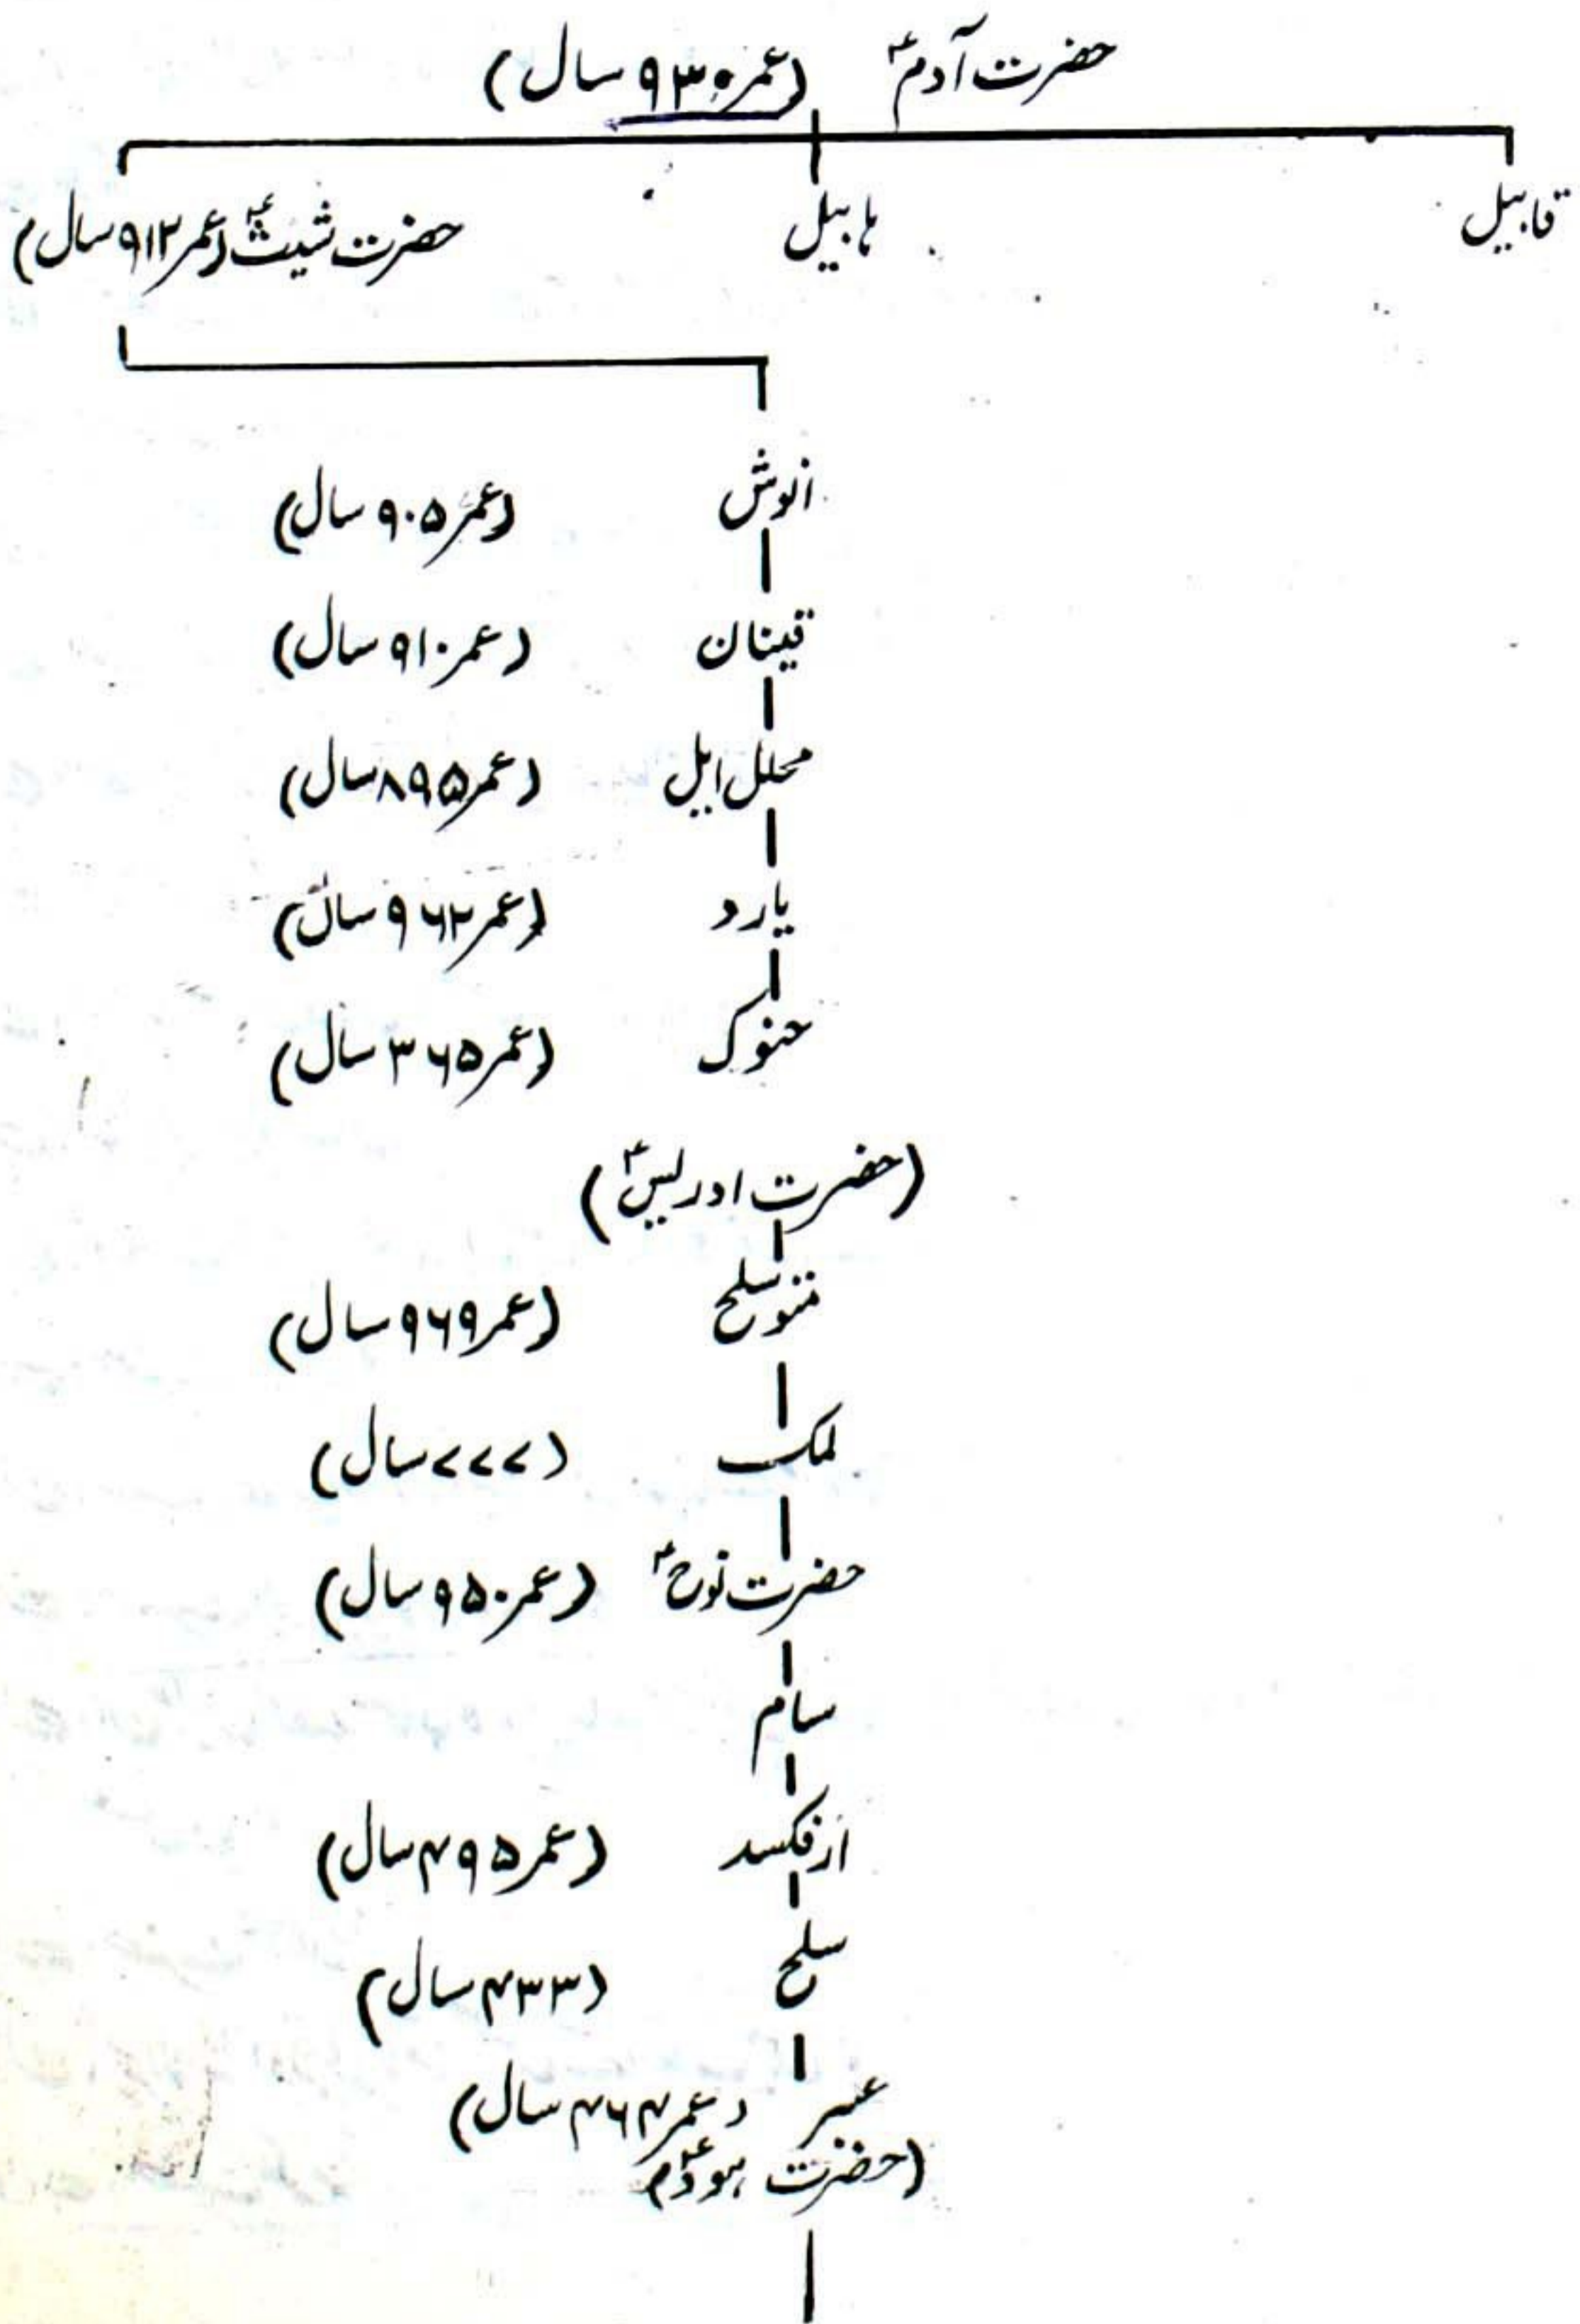 حضرت آدمؑ (عمر ۹۳۰ سال)
قابیل ہابیل حضرت شیثؑ (عمر ۹۱۲ سال)
انوش (عمر ۹۰۵ سال)
قینان (عمر ۹۱۰ سال)
محلل ایل (عمر ۸۹۵ سال)
یارد (عمر ۹۶۲ سال)
حنوک (عمر ۳۶۵ سال)
(حضرت ادریسؑ)
متوسلح (عمر ۹۶۹ سال)
لمک (۷۷۷ سال)
حضرت نوحؑ (عمر ۹۵۰ سال)
سام
ارفکسد (عمر ۴۹۵ سال)
سلح (۴۳۳ سال)
عبر (عمر ۴۶۴ سال)
(حضرت ہودؑ)